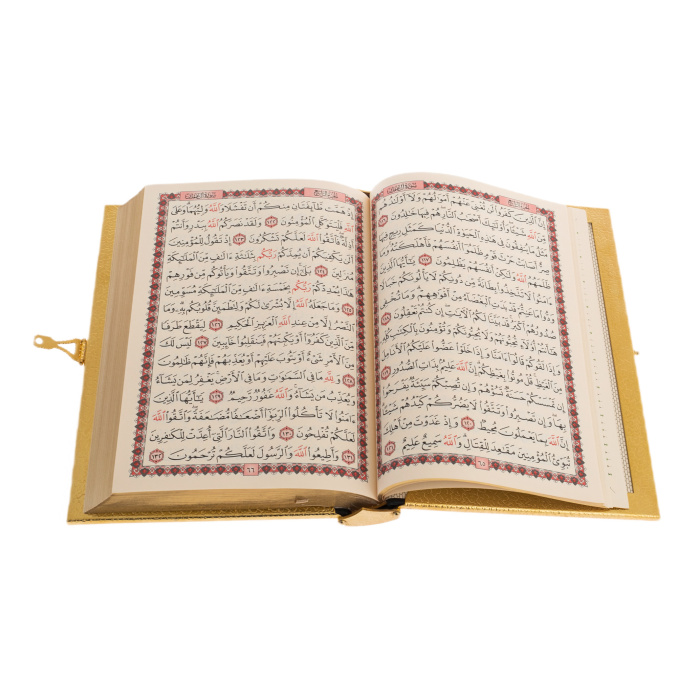 سُورَةُ آلِ عِمْرَانَ الجُزْءُ الرَّابِعُ
إِنَّ ٱلَّذِينَ كَفَرُوا۟ لَن تُغْنِىَ عَنْهُمْ أَمْوَٰلُهُمْ وَلَآ أَوْلَٰدُهُم
مِّنَ ٱللَّهِ شَيْـًٔا وَأُو۟لَٰٓئِكَ أَصْحَٰبُ ٱلنَّارِ هُمْ فِيهَا خَٰلِدُونَ ١١٦
مَثَلُ مَا يُنفِقُونَ فِى هَٰذِهِ ٱلْحَيَوٰةِ ٱلدُّنْيَا كَمَثَلِ رِيحٍ فِيهَا
صِرٌّ أَصَابَتْ حَرْثَ قَوْمٍ ظَلَمُوٓا۟ أَنفُسَهُمْ فَأَهْلَكَتْهُ وَمَا
ظَلَمَهُمُ ٱللَّهُ وَلَٰكِنْ أَنفُسَهُمْ يَظْلِمُونَ ١١٧ يَٰٓأَيُّهَا ٱلَّذِينَ
ءَامَنُوا۟ لَا تَتَّخِذُوا۟ بِطَانَةً مِّن دُونِكُمْ لَا يَأْلُونَكُمْ خَبَالًا
وَدُّوا۟ مَا عَنِتُّمْ قَدْ بَدَتِ ٱلْبَغْضَآءُ مِنْ أَفْوَٰهِهِمْ وَمَا تُخْفِى
صُدُورُهُمْ أَكْبَرُ قَدْ بَيَّنَّا لَكُمُ ٱلْـَٔايَٰتِ إِن كُنتُمْ تَعْقِلُونَ ١١٨
هَٰٓأَنتُمْ أُو۟لَآءِ تُحِبُّونَهُمْ وَلَا يُحِبُّونَكُمْ وَتُؤْمِنُونَ بِٱلْكِتَٰبِ كُلِّهِۦ
وَإِذَا لَقُوكُمْ قَالُوٓا۟ ءَامَنَّا وَإِذَا خَلَوْا۟ عَضُّوا۟ عَلَيْكُمُ ٱلْأَنَامِلَ
مِنَ ٱلْغَيْظِ قُلْ مُوتُوا۟ بِغَيْظِكُمْ إِنَّ ٱللَّهَ عَلِيمٌۢ بِذَاتِ ٱلصُّدُورِ ١١٩
إِن تَمْسَسْكُمْ حَسَنَةٌ تَسُؤْهُمْ وَإِن تُصِبْكُمْ سَيِّئَةٌ يَفْرَحُوا۟
بِهَا وَإِن تَصْبِرُوا۟ وَتَتَّقُوا۟ لَا يَضُرُّكُمْ كَيْدُهُمْ شَيْـًٔا
إِنَّ ٱللَّهَ بِمَا يَعْمَلُونَ مُحِيطٌ ١٢٠ وَإِذْ غَدَوْتَ مِنْ أَهْلِكَ
تُبَوِّئُ ٱلْمُؤْمِنِينَ مَقَٰعِدَ لِلْقِتَالِ وَٱللَّهُ سَمِيعٌ عَلِيمٌ ١٢١
٦٥
الجُزْءُ الرَّابِعُ سُورَةُ آلِ عِمْرَانَ
إِذْ هَمَّت طَّآئِفَتَانِ مِنكُمْ أَن تَفْشَلَا وَٱللَّهُ وَلِيُّهُمَا وَعَلَى
ٱللَّهِ فَلْيَتَوَكَّلِ ٱلْمُؤْمِنُونَ ١٢٢ وَلَقَدْ نَصَرَكُمُ ٱللَّهُ بِبَدْرٍ وَأَنتُمْ
أَذِلَّةٌ فَٱتَّقُوا۟ ٱللَّهَ لَعَلَّكُمْ تَشْكُرُونَ ١٢٣ إِذْ تَقُولُ لِلْمُؤْمِنِينَ
أَلَن يَكْفِيَكُمْ أَن يُمِدَّكُمْ رَبُّكُم بِثَلَٰثَةِ ءَالَٰفٍ مِّنَ ٱلْمَلَٰٓئِكَةِ
مُنزَلِينَ ١٢٤ بَلَىٰٓ إِن تَصْبِرُوا۟ وَتَتَّقُوا۟ وَيَأْتُوكُم مِّن فَوْرِهِمْ
هَٰذَا يُمْدِدْكُمْ رَبُّكُم بِخَمْسَةِ ءَالَٰفٍ مِّنَ ٱلْمَلَٰٓئِكَةِ مُسَوِّمِينَ
١٢٥ وَمَا جَعَلَهُ ٱللَّهُ إِلَّا بُشْرَىٰ لَكُمْ وَلِتَطْمَئِنَّ قُلُوبُكُم بِهِۦ وَمَا
ٱلنَّصْرُ إِلَّا مِنْ عِندِ ٱللَّهِ ٱلْعَزِيزِ ٱلْحَكِيمِ ١٢٦ لِيَقْطَعَ طَرَفًا
مِّنَ ٱلَّذِينَ كَفَرُوٓا۟ أَوْ يَكْبِتَهُمْ فَيَنقَلِبُوا۟ خَآئِبِينَ ١٢٧ لَيْسَ لَكَ
مِنَ ٱلْأَمْرِ شَىْءٌ أَوْ يَتُوبَ عَلَيْهِمْ أَوْ يُعَذِّبَهُمْ فَإِنَّهُمْ ظَٰلِمُونَ
١٢٨ وَلِلَّهِ مَا فِى ٱلسَّمَٰوَٰتِ وَمَا فِى ٱلْأَرْضِ يَغْفِرُ لِمَن يَشَآءُ
وَيُعَذِّبُ مَن يَشَآءُ وَٱللَّهُ غَفُورٌ رَّحِيمٌ ١٢٩ يَٰٓأَيُّهَا ٱلَّذِينَ
ءَامَنُوا۟ لَا تَأْكُلُوا۟ ٱلرِّبَوٰٓا۟ أَضْعَٰفًا مُّضَٰعَفَةً وَٱتَّقُوا۟ ٱللَّهَ
لَعَلَّكُمْ تُفْلِحُونَ ١٣٠ وَٱتَّقُوا۟ ٱلنَّارَ ٱلَّتِىٓ أُعِدَّتْ لِلْكَٰفِرِينَ
١٣١ وَأَطِيعُوا۟ ٱللَّهَ وَٱلرَّسُولَ لَعَلَّكُمْ تُرْحَمُونَ ١٣٢
٦٦